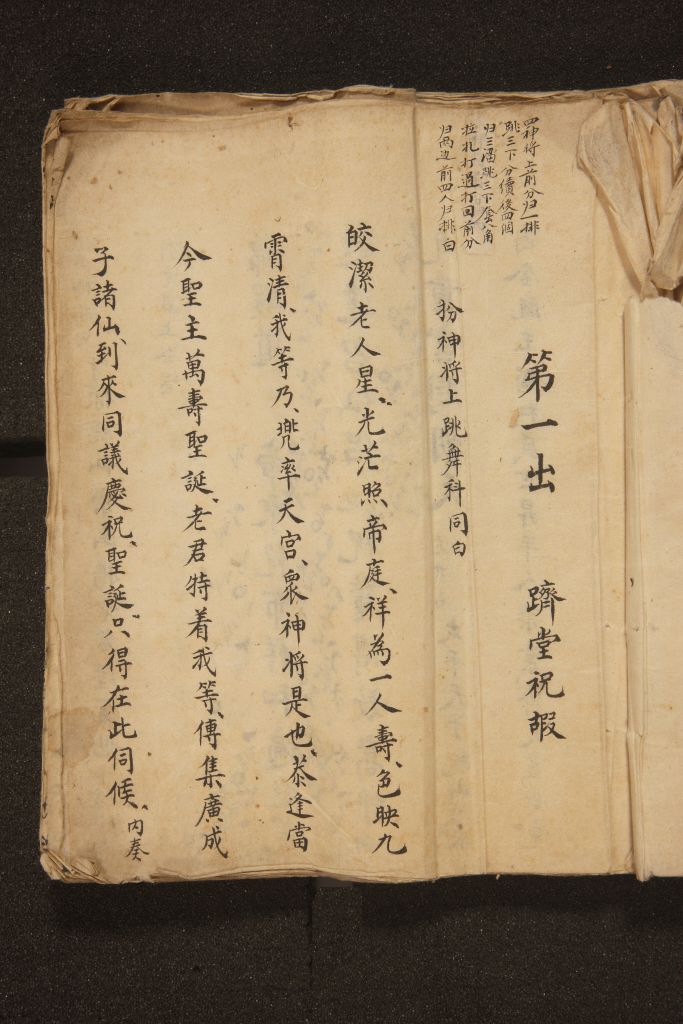 第一出　躋堂祝嘏
四神将上前分归一排
跳三下分續後四個
归三溜跳三下套八角
拉扎打過打回前分
归两边前四人归排白
扮神将上跳舞科同白
皎潔老人星、光茫照帝庭、祥為一人壽、色映九
霄清、我等乃、兜率天宫、衆神将是也、恭逢當
今聖主萬壽聖誕、老君特着我等、傳集廣成
子諸仙、到來同議慶祝、聖誕、只得在此伺候、内奏